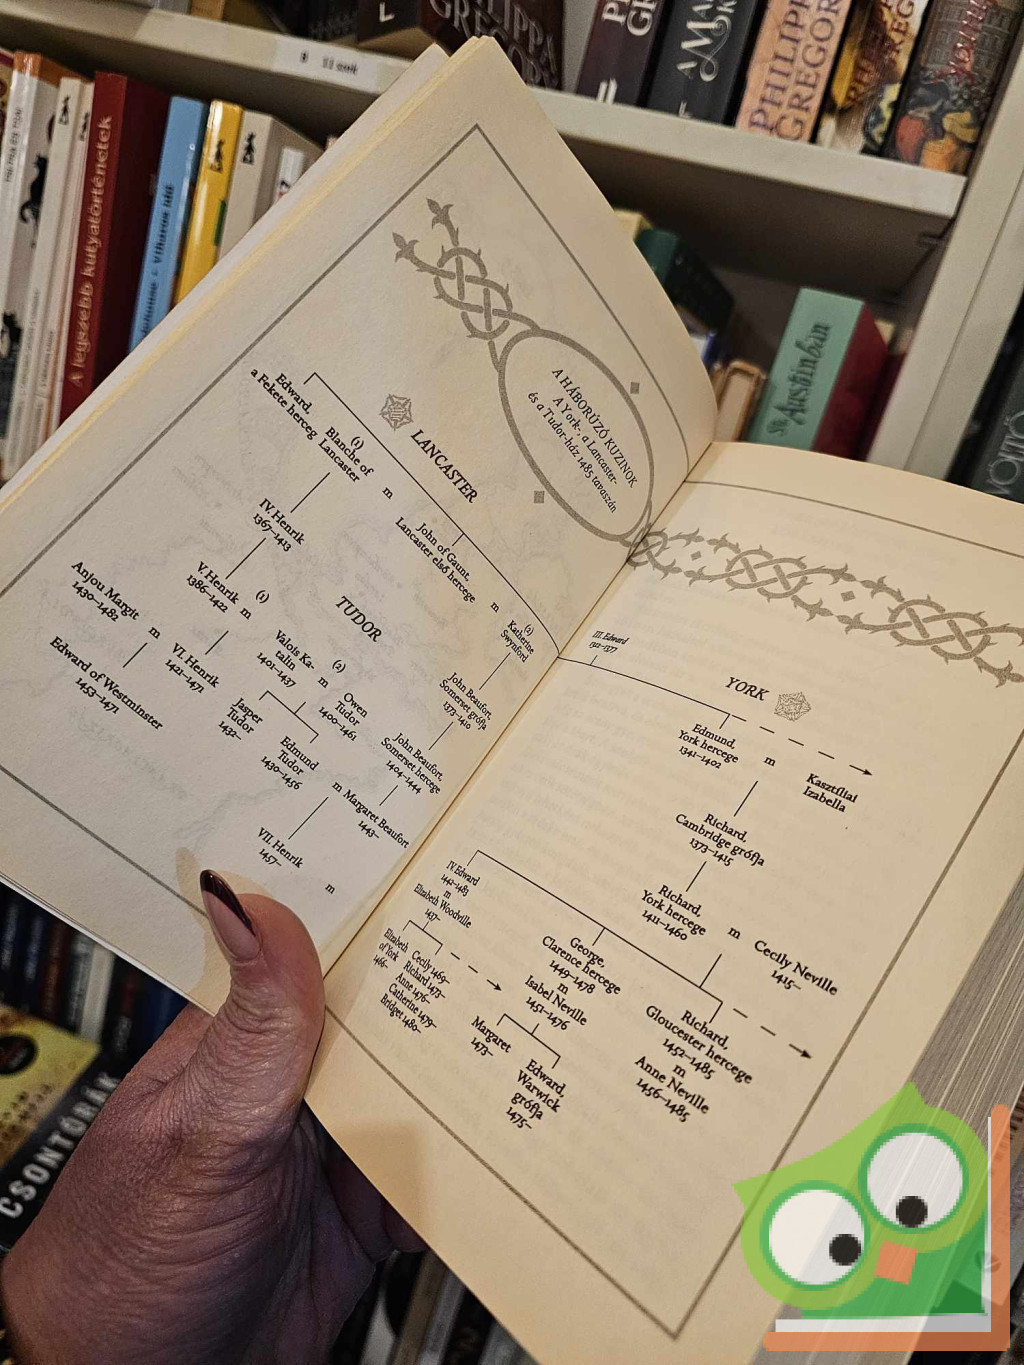 8 12 colt
PHILIPPA
GREGORY
PHILIPPA
GREGOR
A legszebb kutyatörténetek
Austinban
CSONTÓRÁK
A HÁBORÚZÓ KUZINOK
A York-, a Lancaster-
és a Tudor-ház 1485 tavaszán
LANCASTER
Edward,
a Fekete herceg
(1)
Blanche of
Lancaster
m
John of Gaunt,
Lancaster első hercege
m
(2)
Katherine
Swynford
IV. Henrik
1367–1413
V. Henrik
1386–1422
(1)
m
Valois Ka-
talin
1401–1437
(2)
m
Owen
Tudor
1400–1461
TUDOR
John Beaufort,
Somerset grófja
1373–1410
John Beaufort,
Somerset hercege
1404–1444
Anjou Margit
1430–1482
m
VI. Henrik
1421–1471
Edward of Westminster
1453–1471
Jasper
Tudor
1432–
Edmund
Tudor
1430–1456
m
Margaret Beaufort
1443–
VII. Henrik
1457–
m
III. Edward
1312–1377
YORK
Edmund,
York hercege
1341–1402
m
Kasztíliai
Izabella
Richard,
Cambridge grófja
1373–1415
Richard,
York hercege
1411–1460
m
Cecily Neville
1415–
IV. Edward
1442–1483
m
Elizabeth Woodville
1437–
Elizabeth
of York
1466–
Cecily 1469–
Richard 1473–
Anne 1476–
Catherine 1479–
Bridget 1480–
George,
Clarence hercege
1449–1478
m
Isabel Neville
1451–1476
Margaret
1473–
Edward,
Warwick
grófja
1475–
Richard,
Gloucester hercege
1452–1485
m
Anne Neville
1456–1485